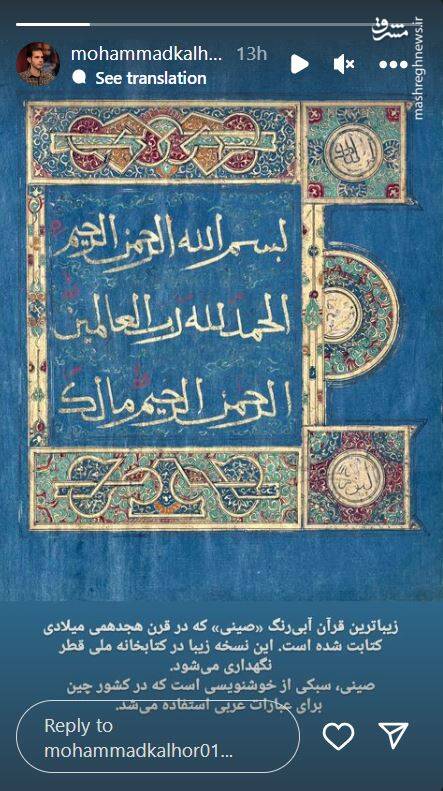 mohammadkalh... 13h
See translation
مشرق
mashreghnews.ir
بسم الله الرحمن الرحيم
الحمد لله رب العالمين
الرحمن الرحيم مالك
زیباترین قرآن آبی‌رنگ «صینی» که در قرن هجدهمی میلادی
کتابت شده است. این نسخه زیبا در کتابخانه ملی قطر
نگهداری می‌شود.
صینی، سبکی از خوشنویسی است که در کشور چین
برای عبارات عربی استفاده می‌شد.
Reply to
mohammadkalhor01...